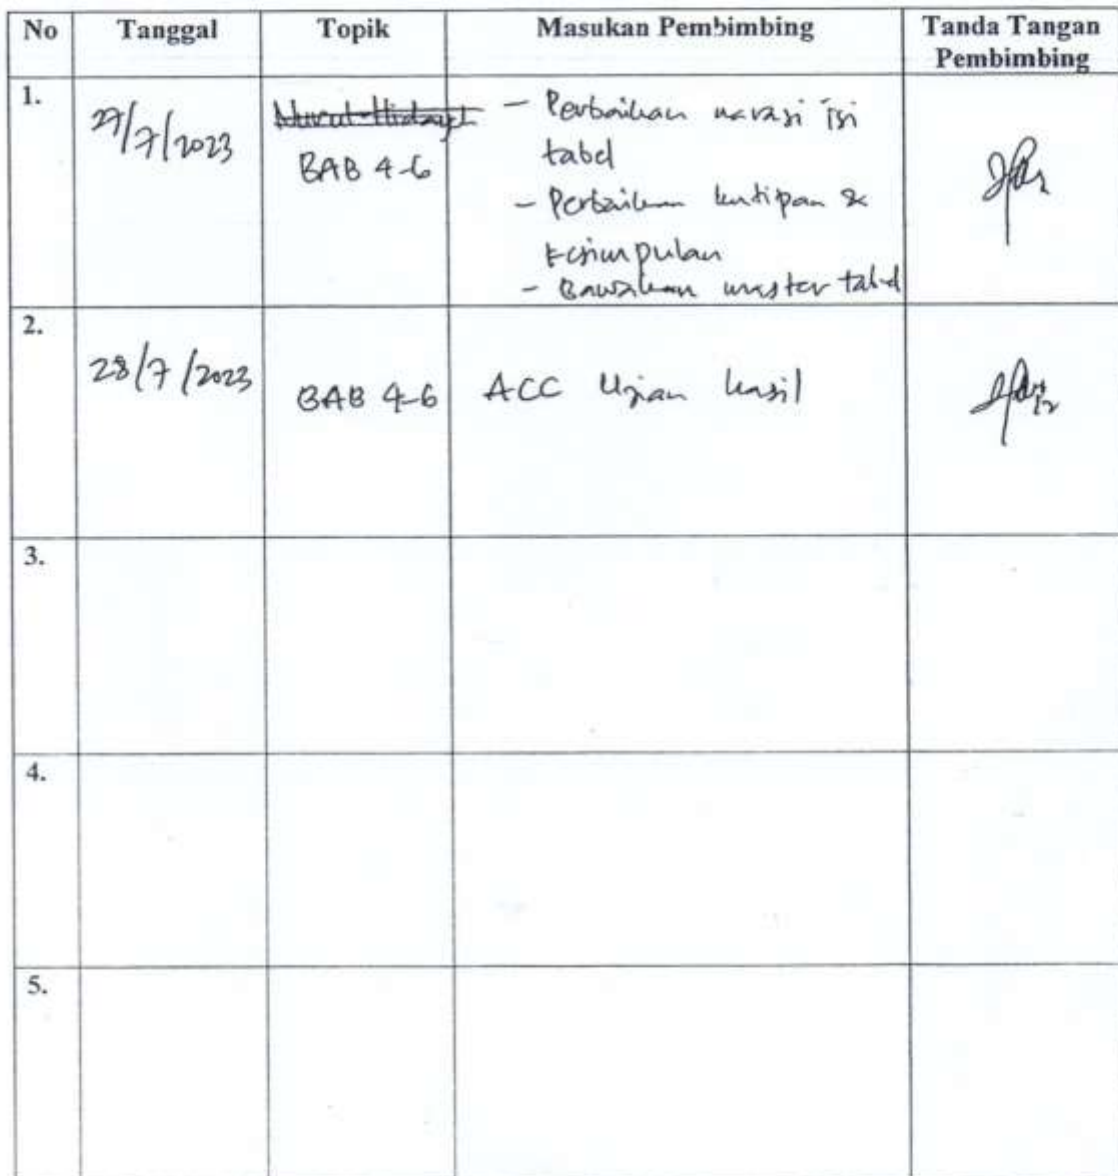 No Tanggal Topik Masukan Pembimbing Tanda Tangan
Pembimbing
1. 27/7/2023 Nurul Hidayah - Perbaikan narasi isi
tabel
BAB 4-6
- Perbaikan kutipan &
kesimpulan
- Bawakan master tabel
2. 28/7/2023 BAB 4-6 ACC Ujian hasil
3.
4.
5.